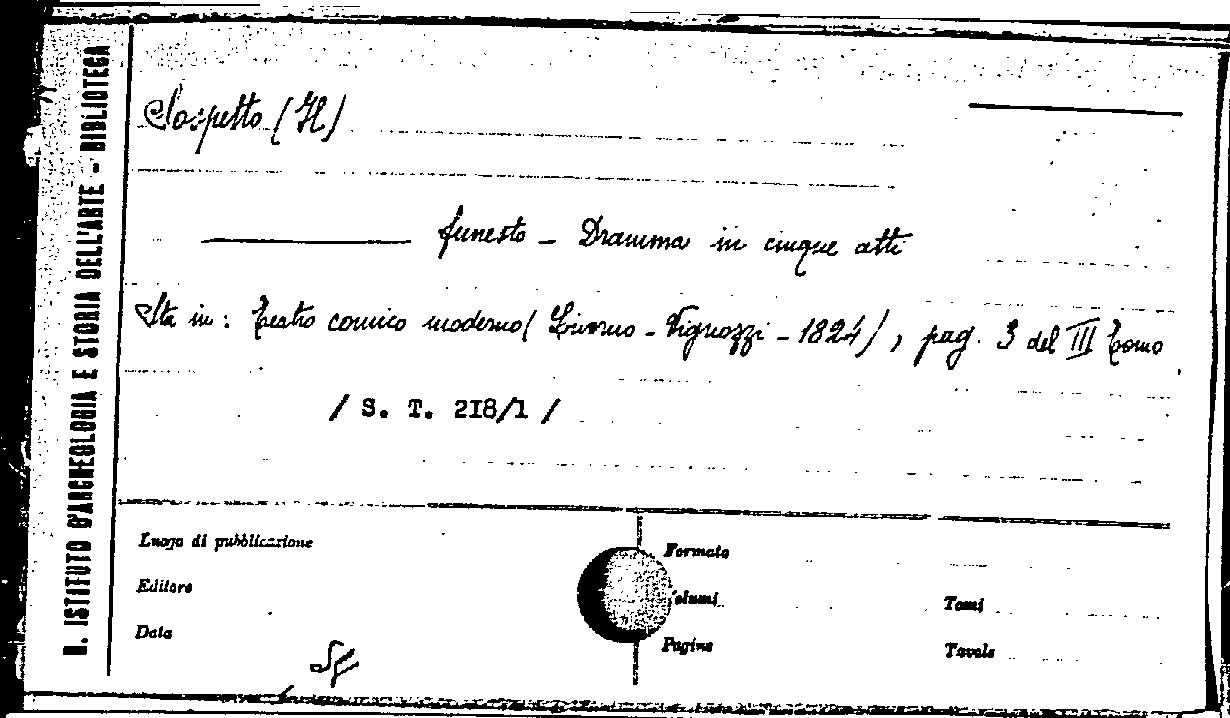 R. ISTITUTO D'ARCHEOLOGIA E STORIA DELL'ARTE - BIBLIOTECA
Sospetto (Il)
funesto - Dramma in cinque atti
Sta in: Teatro comico moderno (Livorno - Vignozzi - 1824), pag. 3 del III Tomo
/ S. T. 218/1 /
Luogo di pubblicazione
Formato
Editore
Volumi
Tomi
Data
Pagine
Tavole